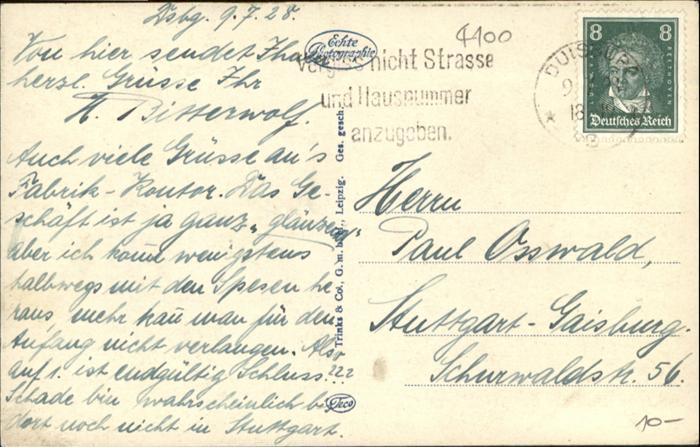 Dsbg. 9.7.28.
Von hier sendet Ihnen
herzl. Grüsse Ihr
H. Bitterwolf.
Auch viele Grüsse an's
Fabrik-Kontor. Das Ge-
schäft ist ja ganz „glänzend"
aber ich kom̄ wenigstens
halbwegs mit den Spesen he-
raus, mehr kan̄ man für den
Anfang nicht verlangen. Also
auf 1. ist endgültig Schluss???
Schade bin wahrscheinlich bis
dort noch nicht in Stuttgart.
Echte
Photographie
4100
Vergiss nicht Strasse
und Hausnummer
anzugeben.
DUISBURG
8 8
BEETHOVEN
Deutsches Reich
Trinks & Co., G. m. b. H., Leipzig. Ges. gesch.
Teco
Herrn
Paul Osswald,
Stuttgart-Gaisburg.
Schurwaldstr. 56.
10-